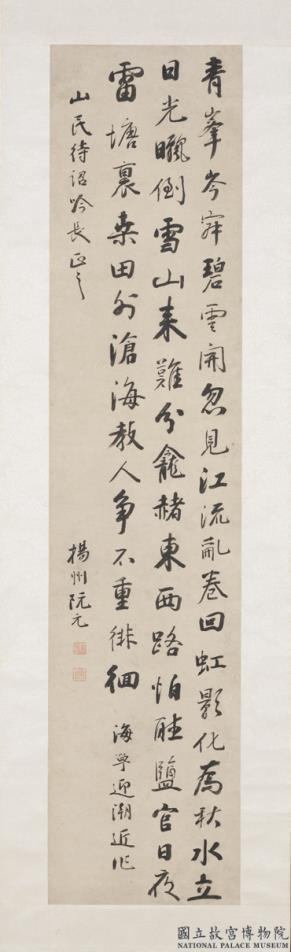 青峯岑寂碧雲開忽見江流亂卷回虹影化為秋水立
日光倒雪山来難分龕赭東西路怕聴鹽官日夜
雷塘裏桑田外滄海教人争不重徘徊 海寧迎潮近作
山民待詔吟長正之
揚州阮元
國立故宮博物院
NATIONAL PALACE MUSEUM